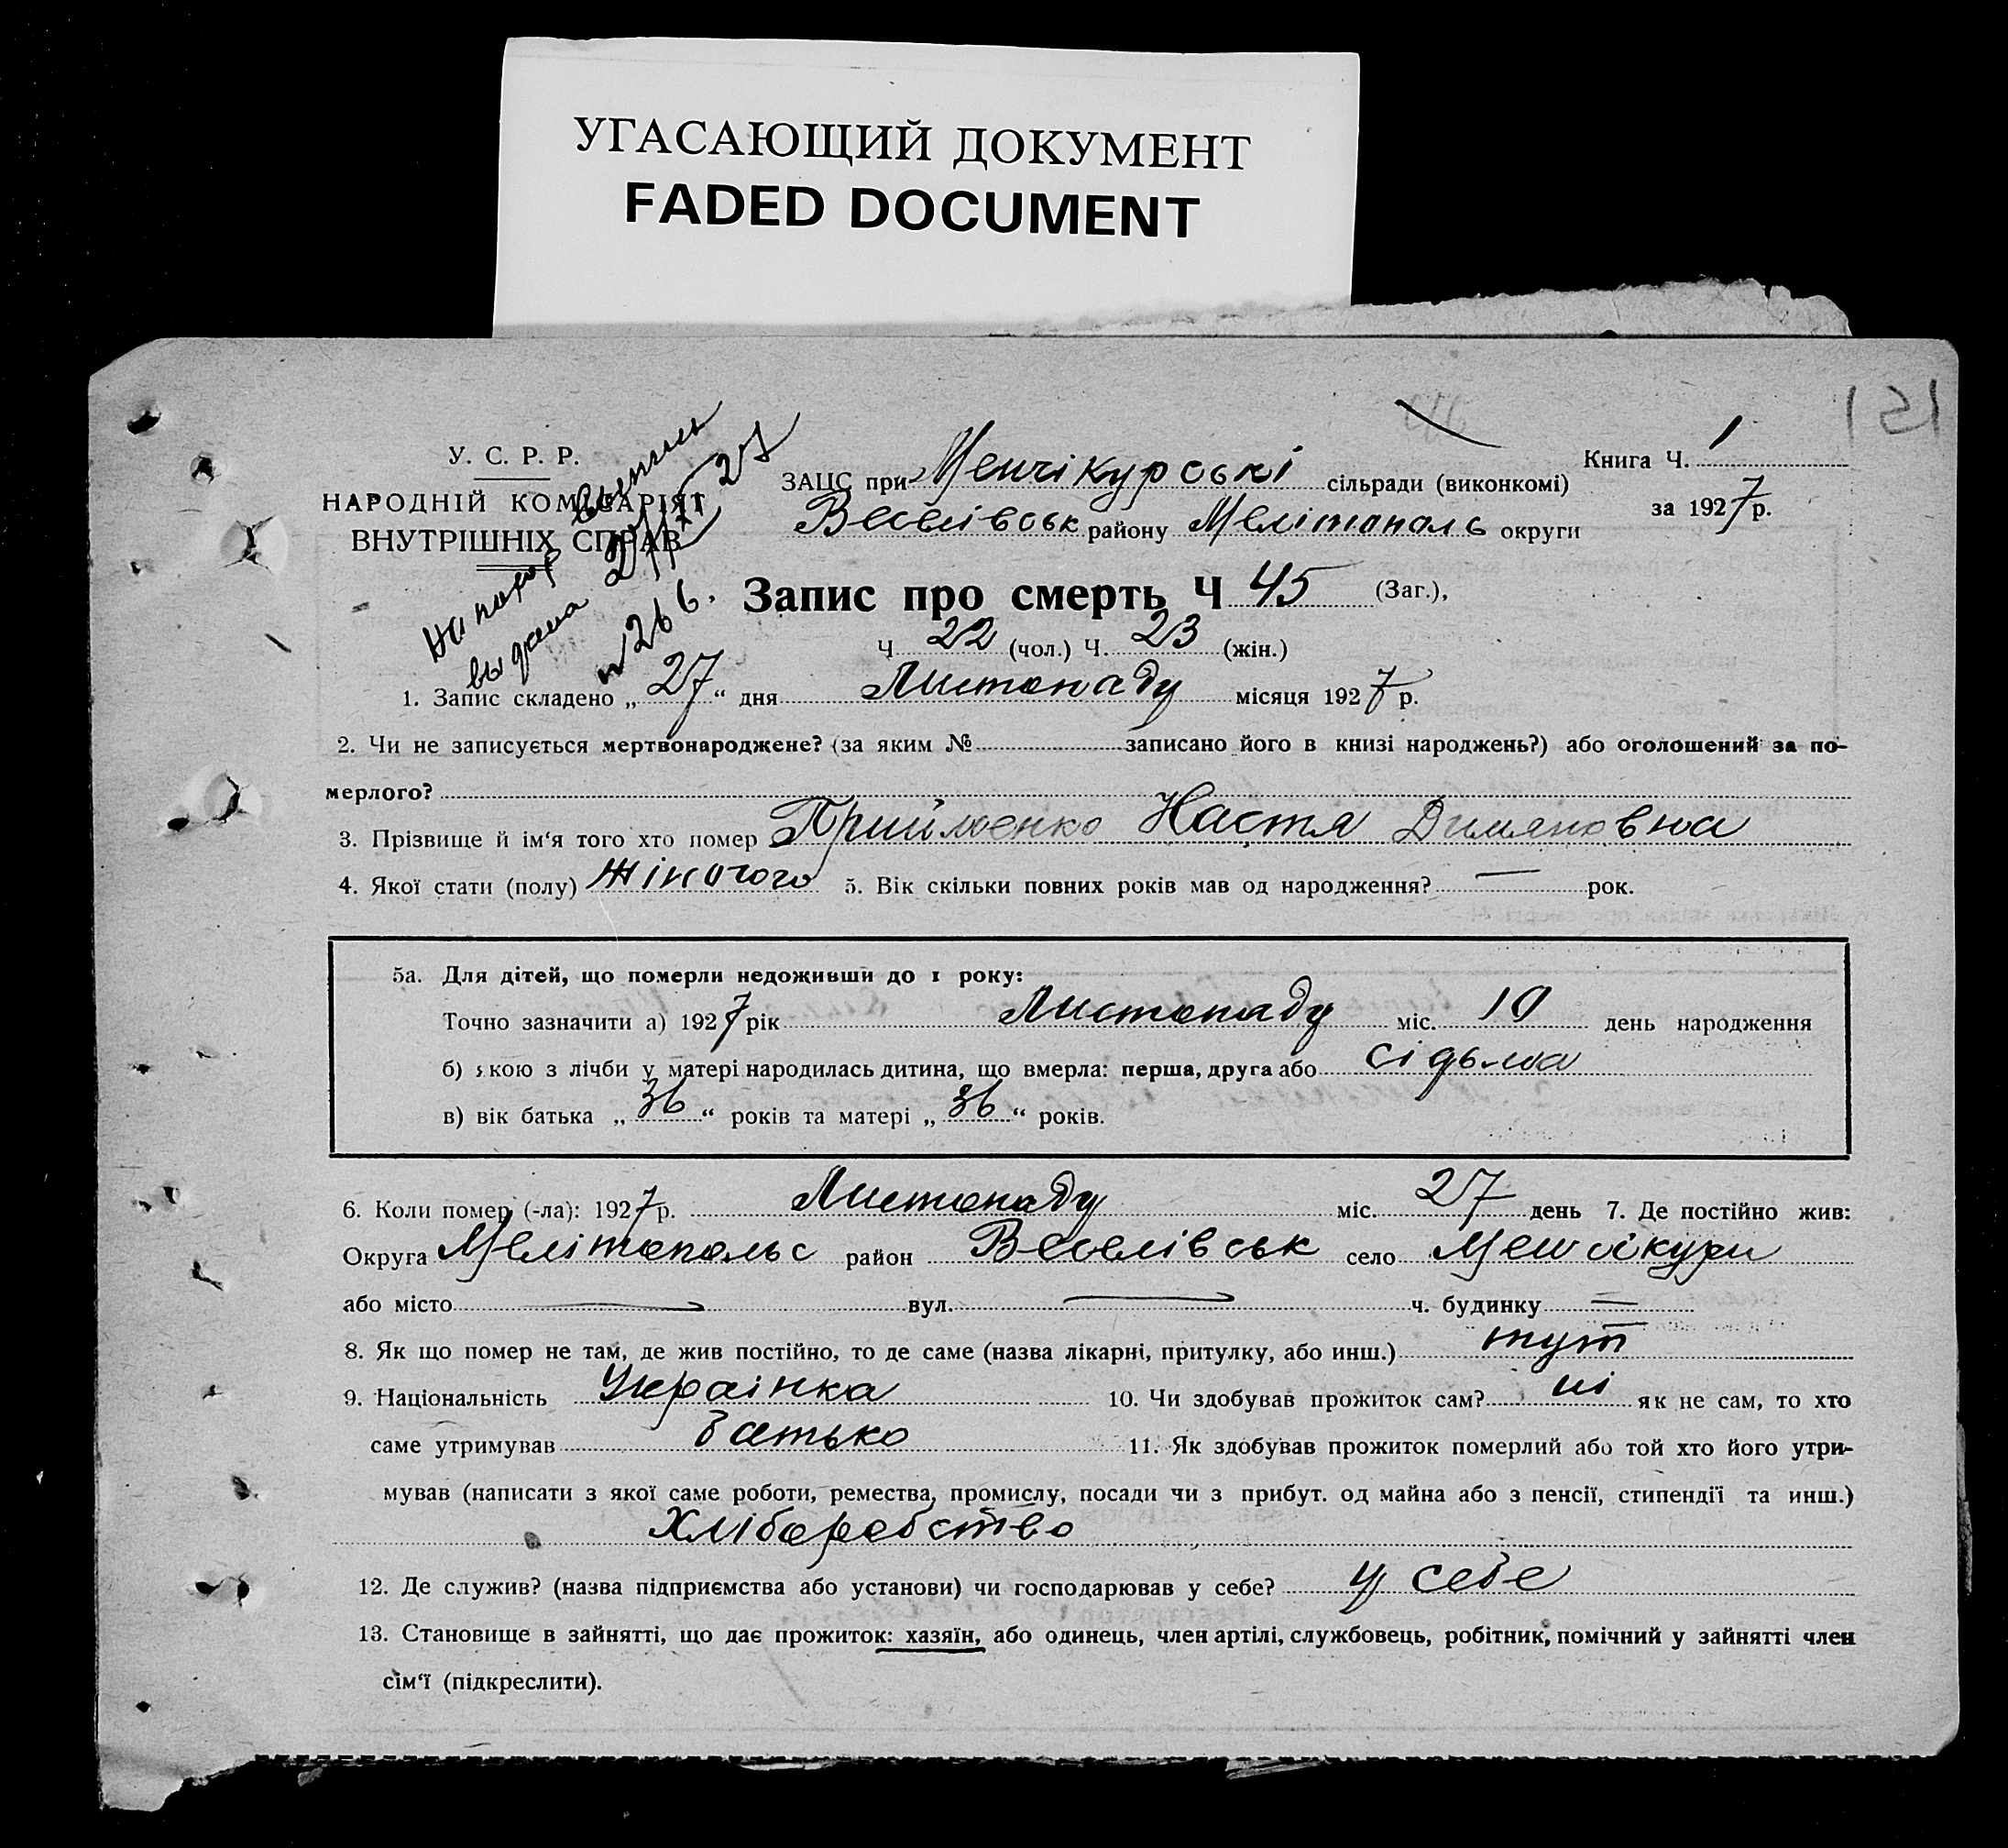 УГАСАЮЩИЙ ДОКУМЕНТ
FADED DOCUMENT
У. С. Р. Р.
НАРОДНІЙ КОМІСАРІЯТ
ВНУТРІШНІХ СПРАВ
выдана
№ 266.
ЗАЦС при Менчікурські сільради (виконкомі)
Веселівськ району Мелітополь округи
Книга Ч. 1
за 1927 р.
Запис про смерть Ч 45 (Заг.),
Ч 22 (чол.) Ч. 23 (жін.)
1. Запис складено „ 27 “ дня Листопаду місяця 1927 р.
2. Чи не записується мертвонароджене? (за яким № записано його в книзі народжень?) або оголошений за по-
мерлого?
3. Прізвище й ім‘я того хто помер Прийменко Настя Димяновна
4. Якої стати (полу) Жіночого 5. Вік скільки повних років мав од народження? — рок.
5а. Для дітей, що померли недоживши до 1 року:
Точно зазначити а) 1927 рік Листопаду міс. 10 день народження
б) якою з лічби у матері народилась дитина, що вмерла: перша, друга або сідьма
в) вік батька „ 36 “ років та матері „ 36 “ років.
6. Коли помер (-ла): 1927 р. Листопаду міс. 27 день 7. Де постійно жив:
Округа Мелітопольс район Веселівськ село Менчікури
або місто — вул. — ч. будинку —
8. Як що помер не там, де жив постійно, то де саме (назва лікарні, притулку, або инш.) тут
9. Національність Українка 10. Чи здобував прожиток сам? ні як не сам, то хто
саме утримував батько 11. Як здобував прожиток померлий або той хто його утри-
мував (написати з якої саме роботи, ремества, промислу, посади чи з прибут. од майна або з пенсії, стипендії та инш.)
Хліборобство
12. Де служив? (назва підприємства або установи) чи господарював у себе? у себе
13. Становище в зайнятті, що дає прожиток: хазяїн, або одинець, член артілі, службовець, робітник, помічний у зайнятті член
сім‘ї (підкреслити).